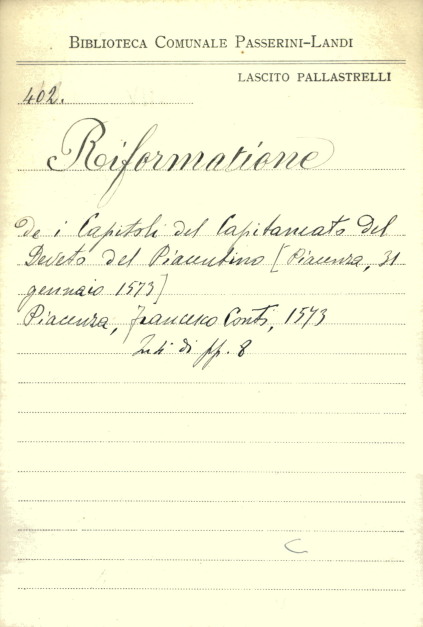 Biblioteca Comunale Passerini-Landi
LASCITO PALLASTRELLI
402.
Riformatione
de i Capitoli del Capitaneato del
Deveto del Piacentino [Piacenza, 31
gennaio 1573]
Piacenza, Francesco Conti, 1573
di pp. 8